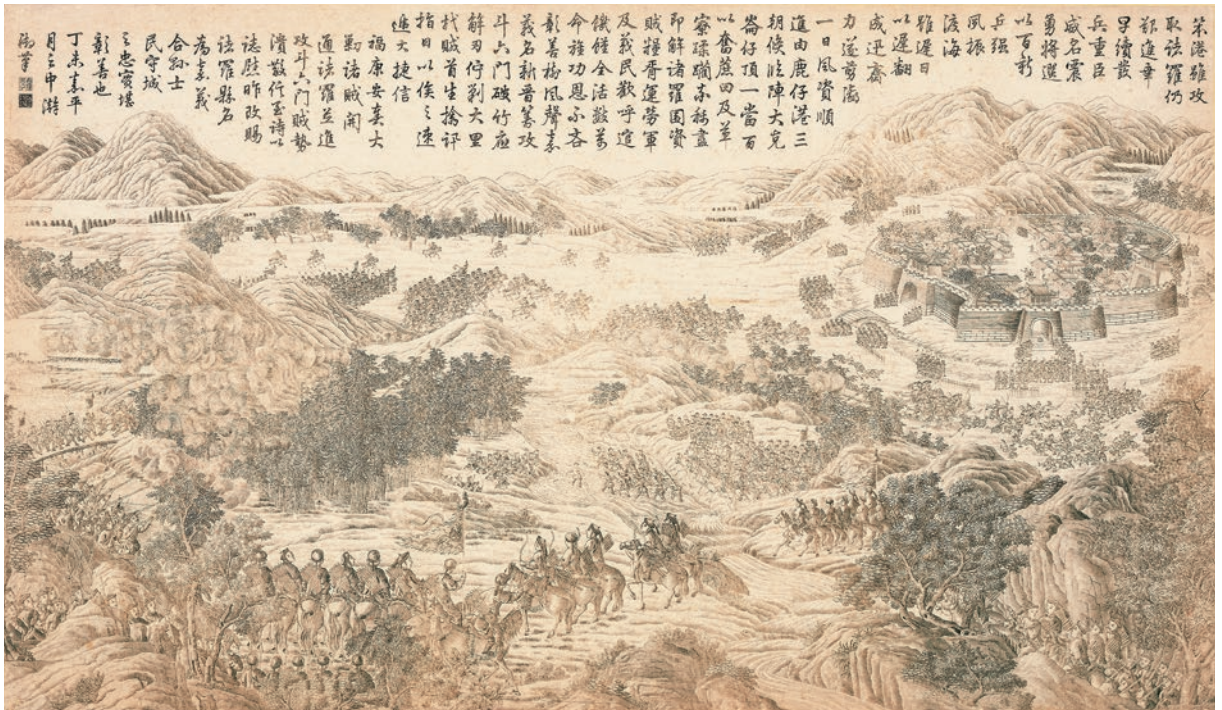 笨港雖策攻
取諸羅仍
艱進
早續發
兵重臣
威名震
勇將選
以百
兵強
風振
渡海
雖遲日
以遲翻
成迅
力遂剪
一日風資順
進由鹿仔港三
朝倏臨陣大克
崙仔頂一當百
以奮蔗田及草
寮蹂躪盡
即解諸羅圍資
賊糧胥運勞軍
及義民歡呼逭
饑饉全活數萬
命旌功恩不吝
彰善樹風聲嘉
義名新晉籌攻
斗六門破竹應
解刃停剿大里
杙賊首生擒訊
指日以俟之速
進大捷信
福康安奏大
勦諸賊開
通諸羅並進
攻斗六門賊勢
潰散行至詩以
誌慰昨改賜
諸羅縣名
為嘉義
合縣士
民守城
之忠實堪
彰善也
丁未嘉平
月中澣
御筆